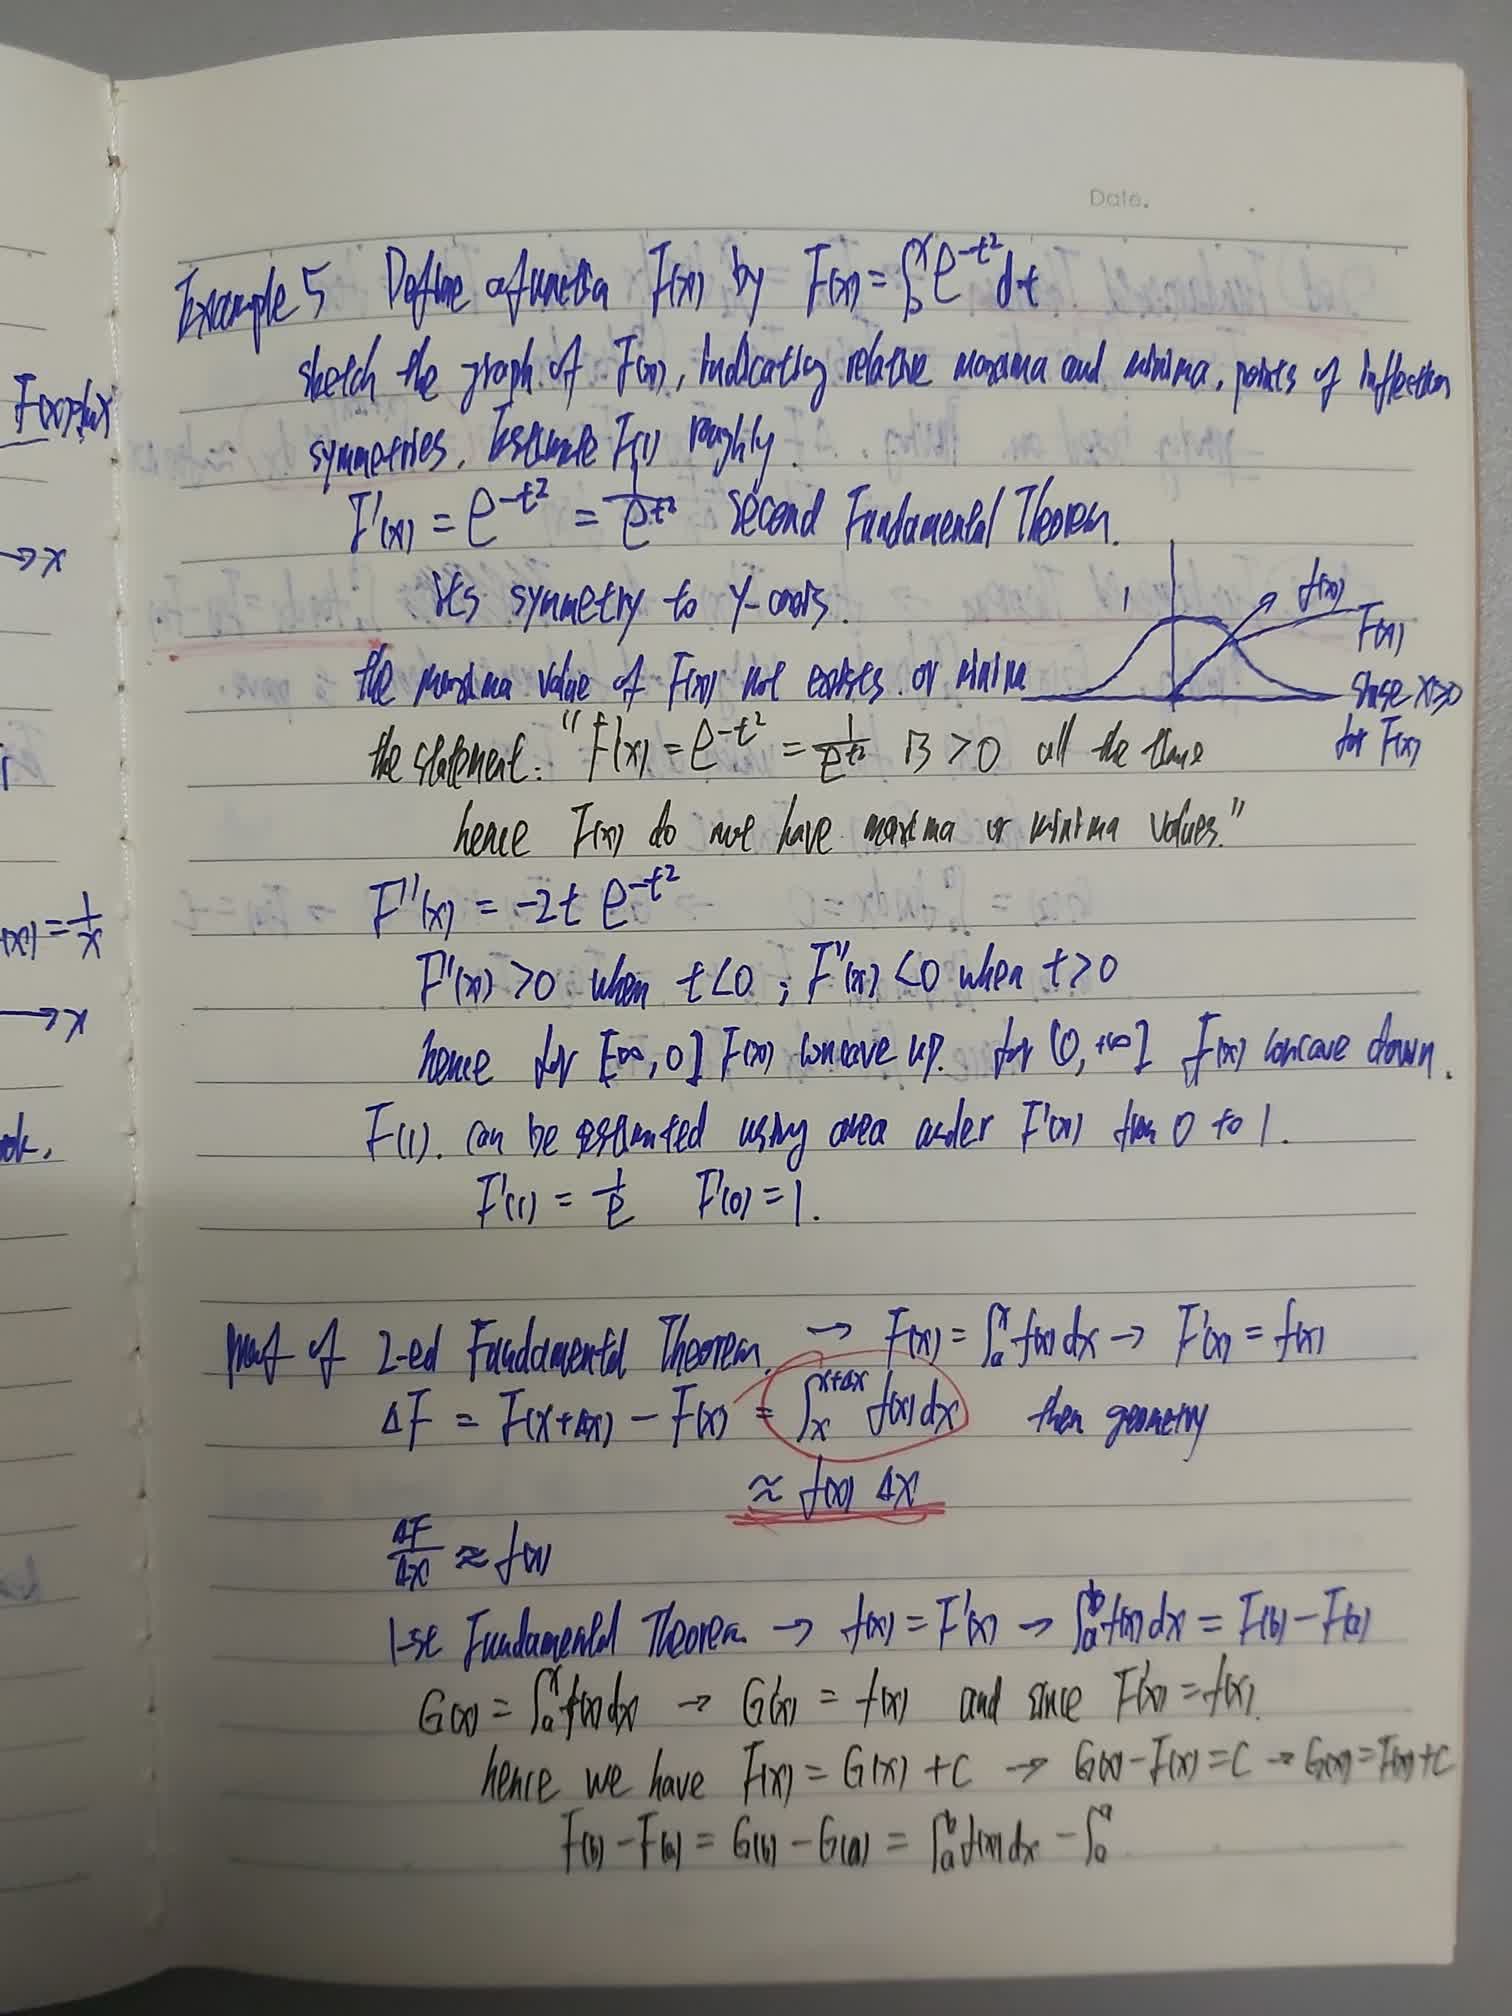 Date.
Example 5 Define a function F(x) by F(x) = ∫₀ˣ e^{-t²} dt
sketch the graph of F(x), indicating relative maxima and minima, points of inflection
symmetries. Estimate F(1) roughly.
F'(x) = e^{-t²} = 1/e^{t²} Second Fundamental Theorem.
its symmetry to y-axis.
1 f(x)
F(x)
the maxima value of F(x) not exists or minima
x>0
for F(x)
the statement: "F'(x) = e^{-t²} = 1/e^{t²} is >0 all the time
hence F(x) do not have maxima or minima values."
F''(x) = -2t e^{-t²}
F''(x) >0 when t<0 ; F''(x) <0 when t>0
hence for [∞, 0] F(x) concave up. for (0, +∞] F(x) concave down.
F(1). can be estimated using area under F'(x) from 0 to 1.
F'(1) = 1/e F'(0) = 1.
proof of 2-ed Fundamental Theorem. → F(x) = ∫ₐˣ f(x) dx → F'(x) = f(x)
ΔF = F(x+Δx) - F(x) = ∫ₓ^{x+Δx} f(x) dx then geometry
≈ f(x) Δx
ΔF/Δx ≈ f(x)
1-st Fundamental Theorem → f(x) = F'(x) → ∫ₐᵇ f(x) dx = F(b) - F(a)
G(x) = ∫ₐˣ f(x) dx → G'(x) = f(x) and since F'(x) = f(x).
hence we have F(x) = G(x) + C → G(x) - F(x) = C → G(x) = F(x) + C
F(b) - F(a) = G(b) - G(a) = ∫ₐᵇ f(x) dx - ∫ₐᵃ